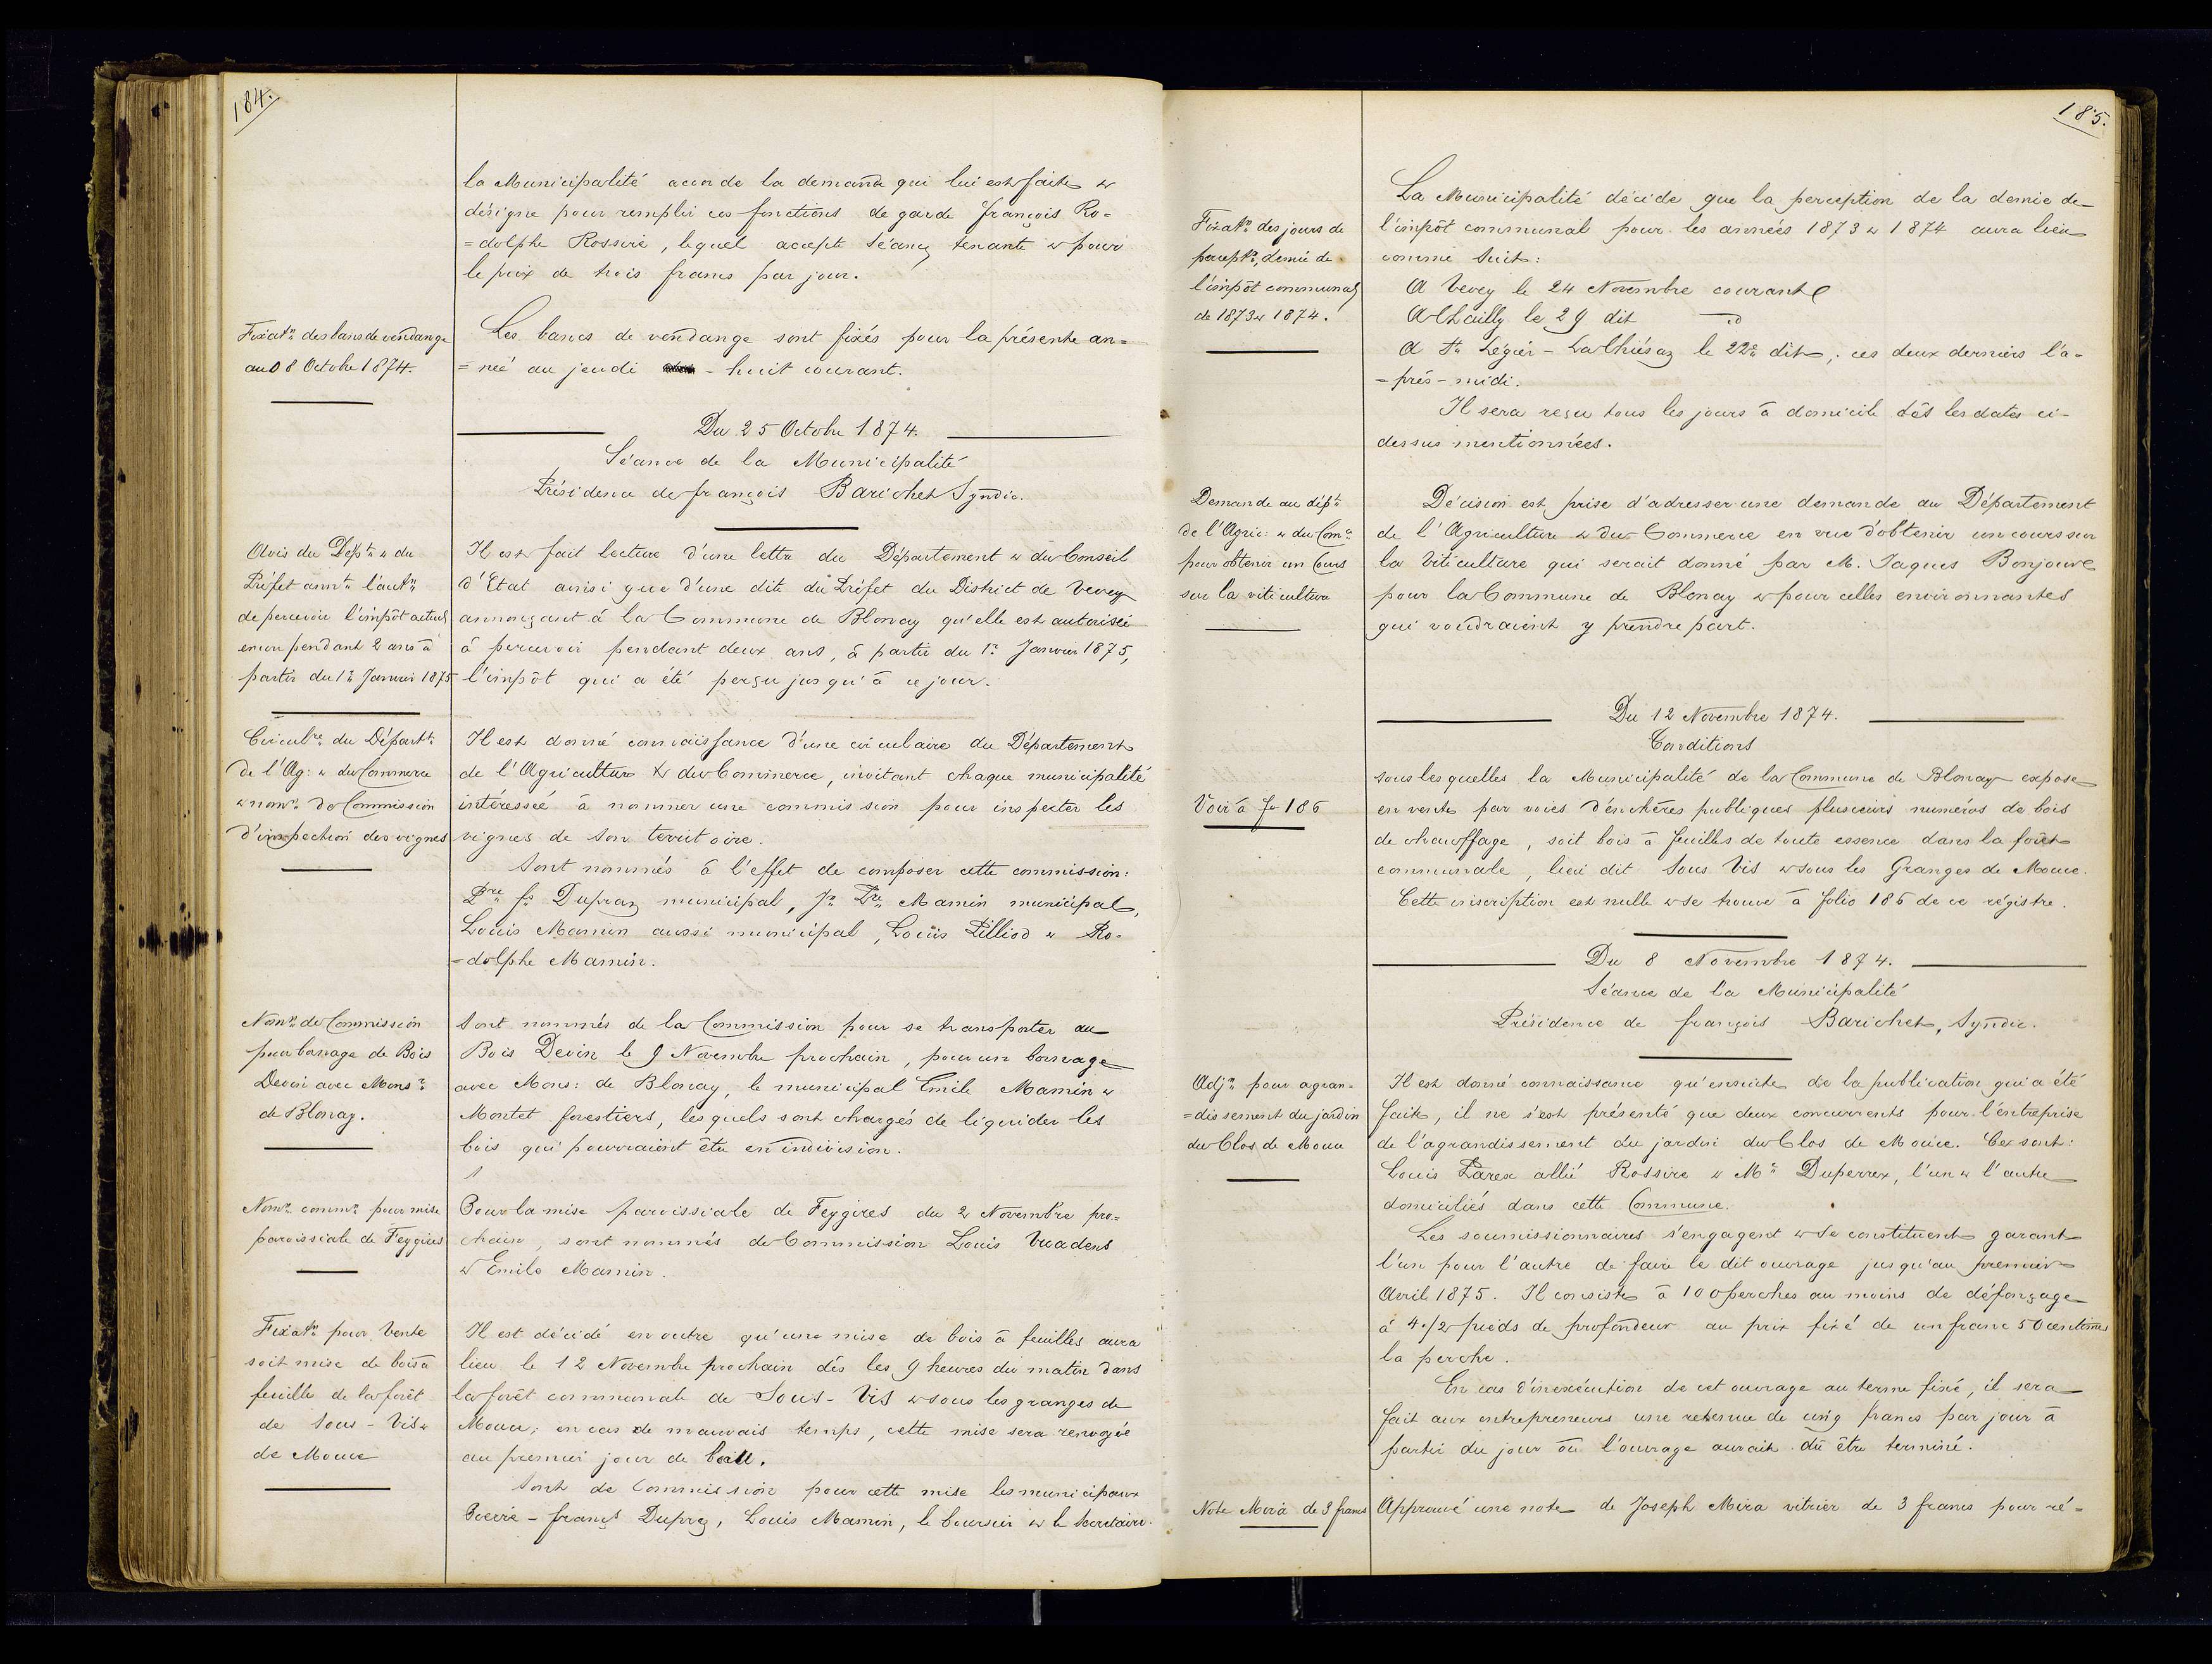 184.
la Municipalité accorde la demande qui lui est faite &
désigne pour remplir ces fonctions de garde françois Ro=
=dolphe Rossire, lequel accepte séance tenante & pour
le prix de trois francs par jour.
Fixatn des bans de vendange
au 08 Octobre 1874.
Les bancs de vendange sont fixés pour la présente an=
=née au jeudi - huit courant.
Du 25 Octobre 1874.
Séance de la Municipalité
Présidence de françois Barichet Syndic.
Avis du Dépt & du
Préfet annt l'autn
de percevoir l'impôt actuel
encore pendant 2 ans à
partir du 1r Janvier 1875
Il est fait lecture d'une lettre du Département & du Conseil
d'Etat ainsi que d'une dite du Préfet du District de Vevey
annonçant à la Commune de Blonay qu'elle est autorisée
à percevoir pendant deux ans, à partir du 1r Janvier 1875,
l'impôt qui a été perçu jusqu'à ce jour.
Circulre du Départt
de l'Ag: & du Commerce
& nomn de Commission
d'inspection des vignes
Il est donné connaissance d'une circulaire du Département
de l'Agriculture & du Commerce, invitant chaque municipalité
intéressée à nommer une commission pour inspecter les
vignes de son territoire.
Sont nommés à l'effet de composer cette commission:
Pre fs Dupraz municipal, Jn Pre Mamin municipal,
Louis Mamin aussi municipal, Louis Pilliod & Ro-
-dolphe Mamin.
Nomn de Commission
pour bornage de Bois
Devin avec Monsr
de Blonay.
Sont nommés de la Commission pour se transporter au
Bois Devin le 9 Novembre prochain, pour un bornage
avec Mons: de Blonay, le municipal Emile Mamin &
Montet forestiers, lesquels sont chargés de liquider les
bois qui pourraient être en indivision.
Nomn commn pour mise
paroissiale de Feygires
Pour la mise paroissiale de Feygires du 2 Novembre pro=
chain, sont nommés de Commission Louis Vuadens
& Emile Mamin.
Fixatn pour Vente
soit mise de bois à
feuille de la forêt
de Sous-Vis &
de Mouce
Il est décidé en outre qu'une mise de bois à feuilles aura
lieu le 12 Novembre prochain dès les 9 heures du matin dans
la forêt communale de Sous-Vis & sous les granges de
Mouce; en cas de mauvais temps, cette mise sera renvoyée
au premier jour de beau.
Sont de Commission pour cette mise les municipaux
Pierre-françs Duprz, Louis Mamin, le boursier & le Secrétaire.
185.
Fixatn des jours de
perceptn, demie de
l'impôt communal
de 1873 & 1874.
La Municipalité décide que la perception de la demie de
l'impôt communal pour les années 1873 & 1874 aura lieu
comme suit:
A Vevey le 24 Novembre courant
A Chailly le 29 dit
A St Légier-La Chiésaz le 22e dit, ces deux derniers l'a-
-près-midi.
Il sera reçu tous les jours à domicile dès les dates ci-
dessus mentionnées.
Demande au dépt
de l'Agric: & du Come
pour obtenir un Cours
sur la viticulture
Décision est prise d'adresser une demande au Département
de l'Agriculture & du Commerce en vue d'obtenir un cours sur
la Viticulture qui serait donné par M. Jaques Bonjour
pour la Commune de Blonay & pour celles environnantes
qui voudraient y prendre part.
Du 12 Novembre 1874.
Conditions
Voir à fo 186
sous lesquelles la Municipalité de la Commune de Blonay expose
en vente par voies d'enchères publiques plusieurs numéros de bois
de chauffage, soit bois à feuilles de toute essence dans la forêt
communale, lieu dit Sous Vis & sous les Granges de Mouce.
Cette inscription est nulle & se trouve à folio 186 de ce régistre.
Du 8 Novembre 1874.
Séance de la Municipalité
Présidence de françois Barichet, Syndic.
Adjn pour agran-
=dissement du jardin
du Clos de Mouce
Il est donné connaissance qu'ensuite de la publication qui a été
faite, il ne s'est présenté que deux concurrents pour l'entreprise
de l'agrandissement du jardin du Clos de Mouce. Ce sont:
Louis Parex allié Rossire & Mc Duperrex, l'un & l'autre
domiciliés dans cette Commune.
Les soumissionnaires s'engagent & se constituent garant
l'un pour l'autre de faire le dit ouvrage jusqu'au premier
Avril 1875. Il consiste à 100 perches au moins de défonçage
à 4 1/2 pieds de profondeur au prix fixé de un franc 50 centimes
la perche.
En cas d'inexécution de cet ouvrage au terme fixé, il sera
fait aux entrepreneurs une retenue de cinq francs par jour à
partir du jour où l'ouvrage aurait dû être terminé.
Note Mora de 3 francs
Approuvé une note de Joseph Mira vitrier de 3 francs pour ré-